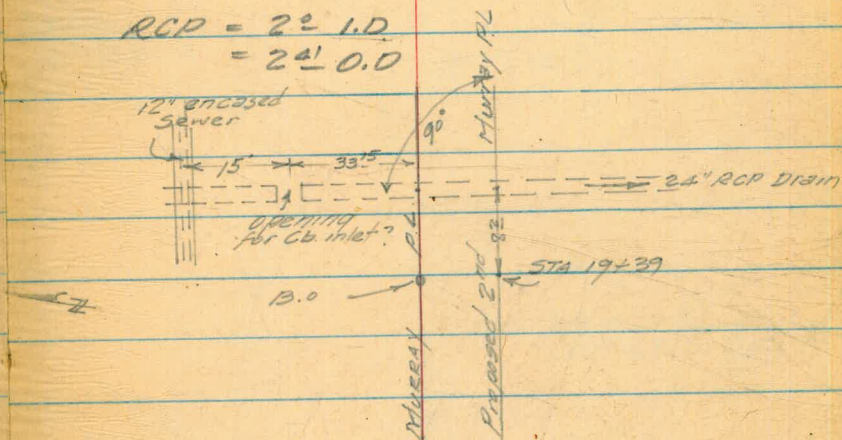 RCP = 2º I.D
= 2⁴¹ O.D
12" encased
Sewer
15'
33'⁵
90°
Murray P.L
24" RCP Drain
opening
for Cb. inlet?
P.L
82
STA 19+39
13.0
N
MURRAY
Proposed 2nd